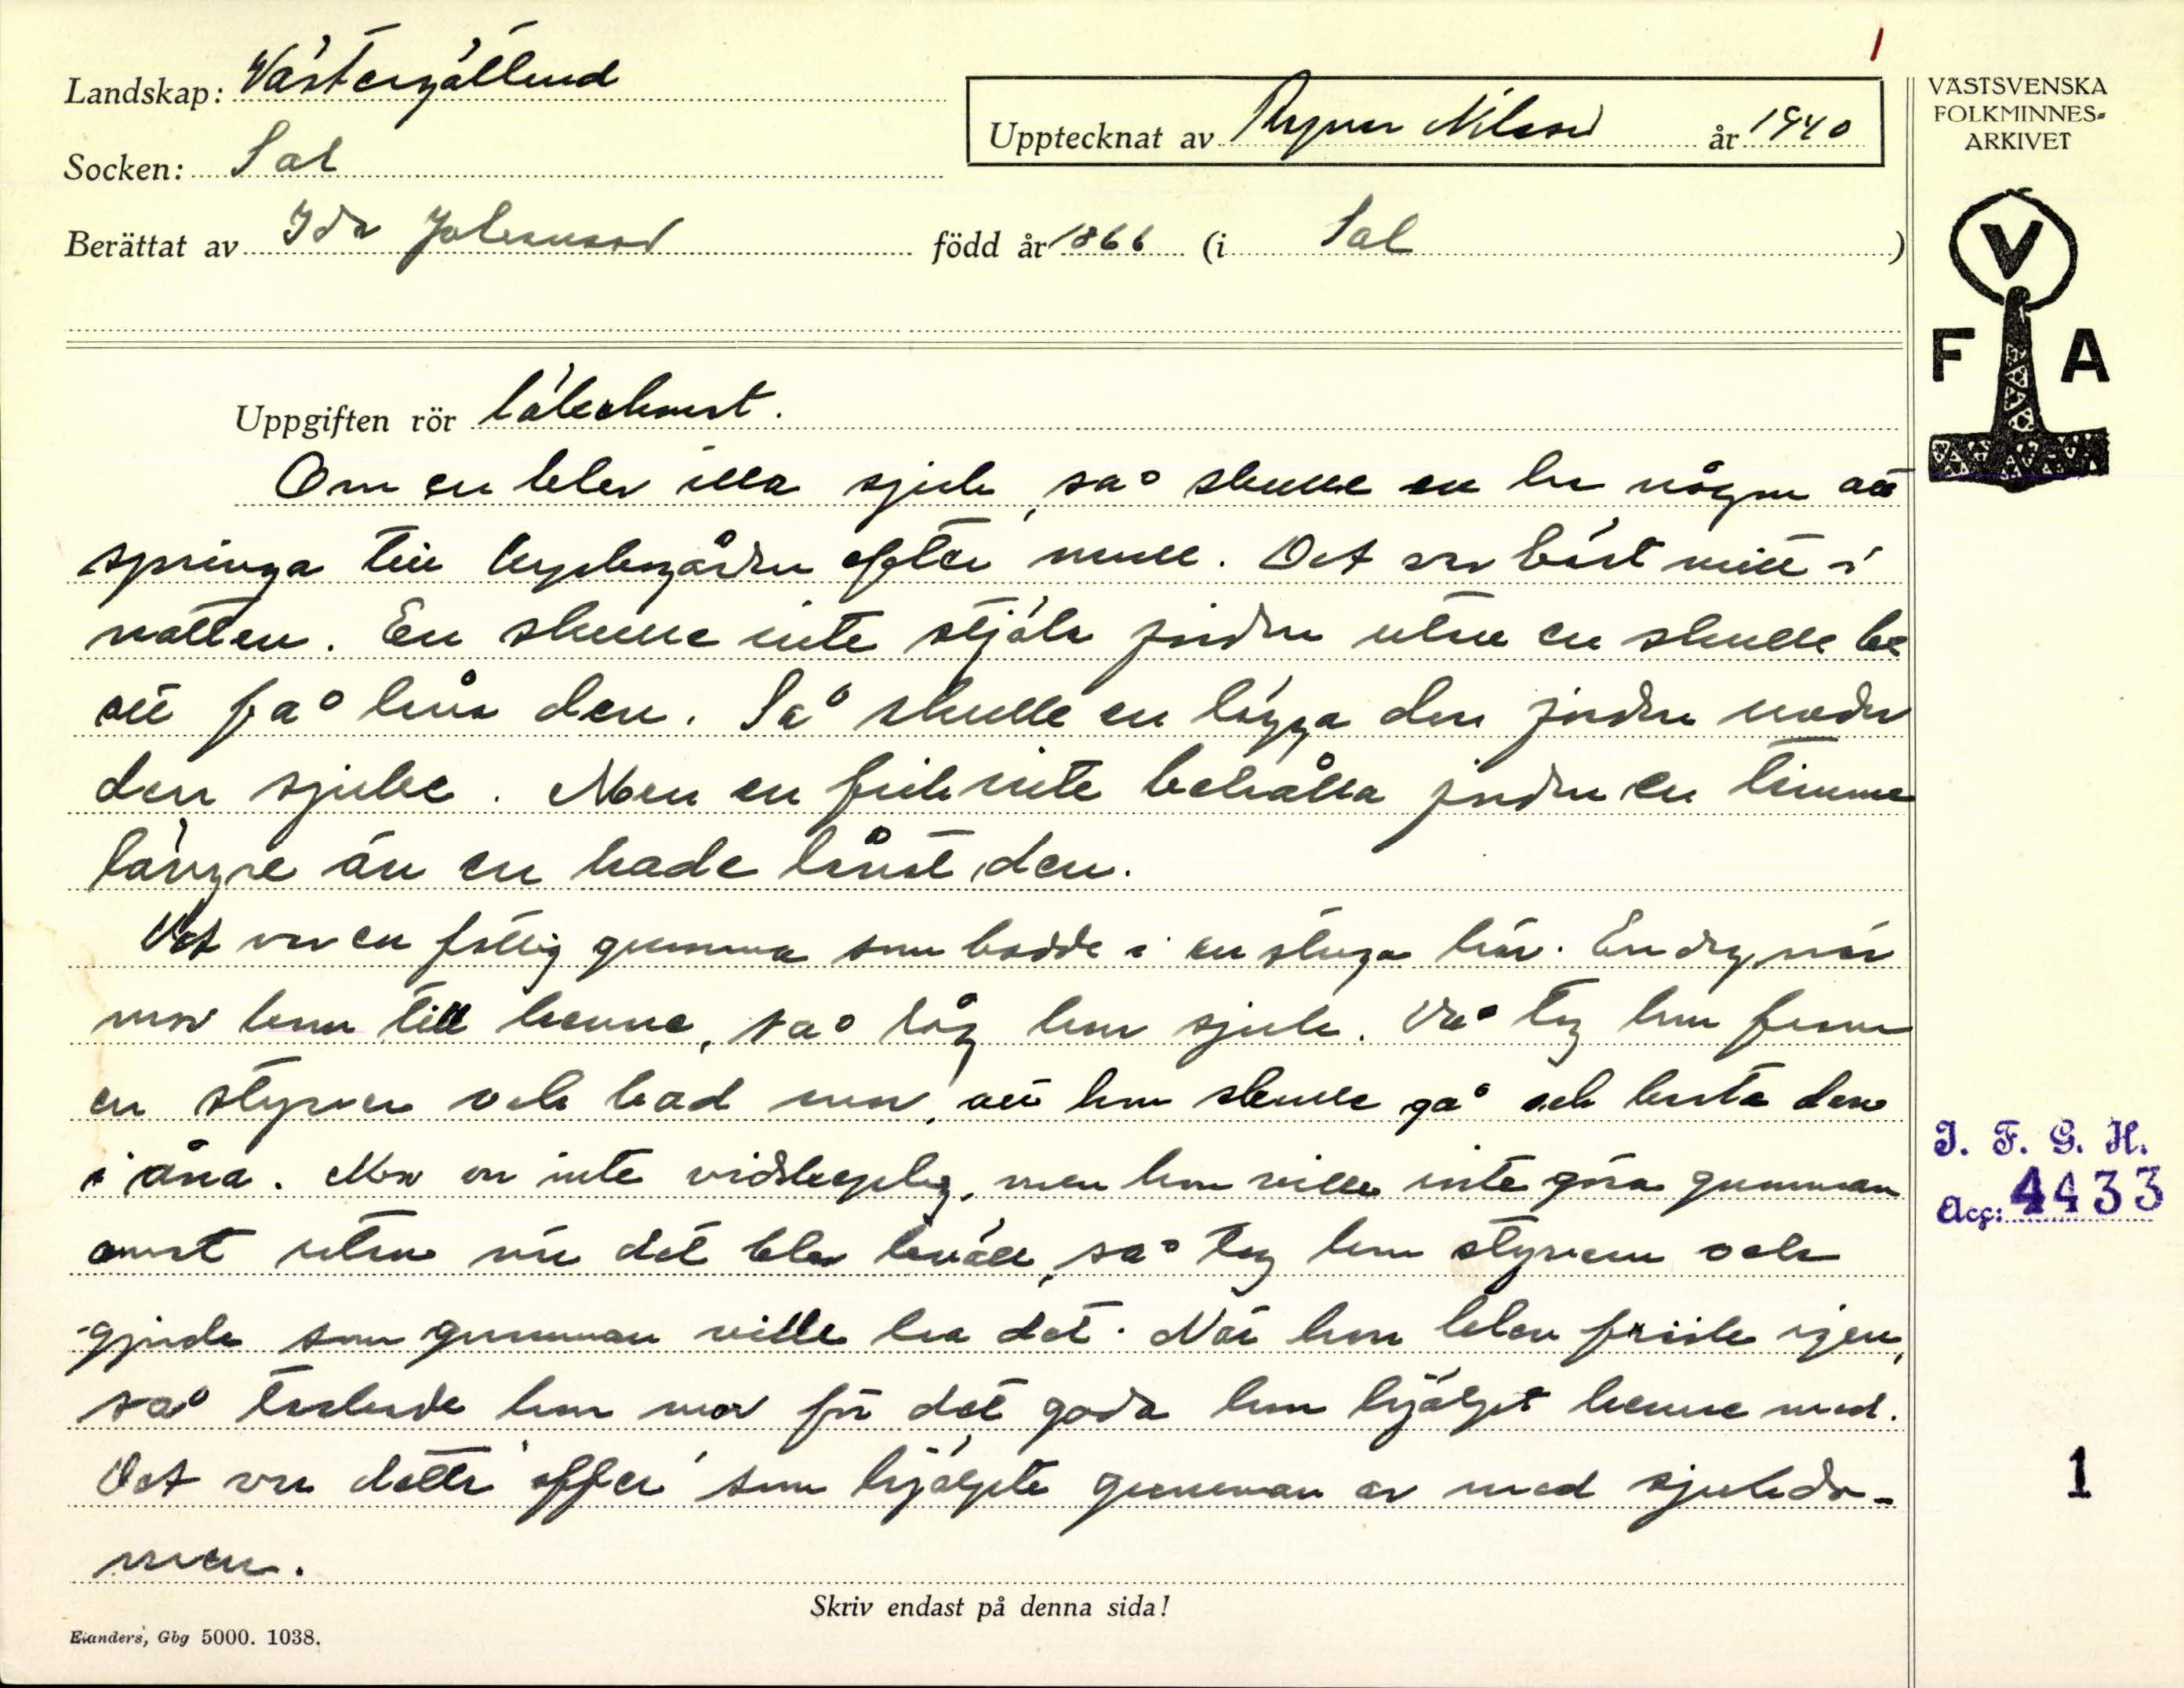 1
Landskap: Västergötland
Upptecknat av Ragnar Nilsson år 1940
Socken: Sal
Berättat av Ida Johansson född år 1866 (i Sal)
VÄSTSVENSKA
FOLKMINNES-
ARKIVET
V
F A
Uppgiften rör läkekonst.
Om en blev illa sjuk, så skulle en be någon att
springa till kyrkogården efter mull. Det var bäst mitt i
natten. En skulle inte stjäla jorden utan en skulle be
att få låna den. Så skulle en lägga den jorden under
den sjuke. Men en fick inte behålla jorden en timme
längre än en hade lånat den.
Det var en fattig gumma som bodde i en stuga här. En dag när
mor kom till henne, så låg hon sjuk. Då tog hon fram
en styver och bad mor, att hon skulle gå och kasta den
i åna. Mor var inte vidskeplig, men hon ville inte göra gumman
emot utan när det blev kväll, så tog hon styvern och
gjorde som gumman ville ha det. När hon blev frisk igen,
så tackade hon mor för det goda hon hjälpt henne med.
Det var detta "offer" som hjälpte gumman av med sjukdo-
men.
J. F. G. H.
Acc: 4433
1
Skriv endast på denna sida!
Elanders, Gbg 5000. 1038.